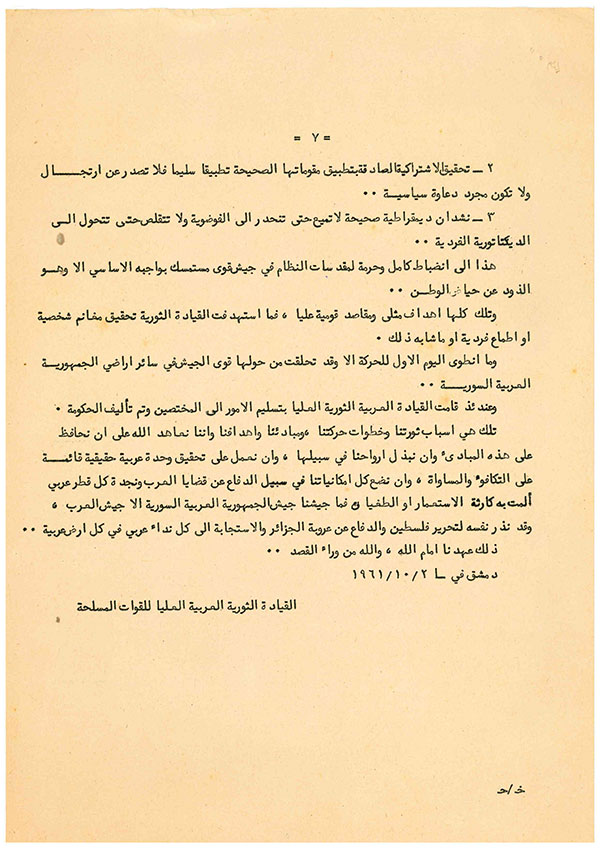 = ٧ =
٢ ــ تحقيق الاشتراكية الصادقة بتطبيق مقوماتها الصحيحة تطبيقا سليما فلا تصدر عن ارتجـــــال
ولا تكون مجرد دعاوة سياسيـــة ٠٠
٣ ــ نشدان ديمقراطية صحيحة لاتميع حتى تنحدر الى الفوضوية ولا تتقلص حتى تتحول الــى
الديكتاتورية الفردية ٠٠
هذا الى انضباط كامل وحرمة لمقدسات النظام في جيش قوى مستمسك بواجبه الاساسي الا وهــو
الذود عن حياض الوطــن ٠٠
وتلك كلها اهداف مثلى ومقاصد قومية عليا ، فما استهدفت القيادة الثورية تحقيق مغانم شخصية
او اطماع فردية او ماشابه ذلك ٠
وما انطوى اليوم الاول للحركة الا وقد تحلقت من حولها قوى الجيش في سائر اراضي الجمهوريـــة
العربية السوريــــة ٠٠
وعندئذ قامت القيادة العربية الثورية العليا بتسليم الامور الى المختصين وتم تأليف الحكومة ٠
تلك هي اسباب ثورتنا وخطوات حركتنا ،ومبادئنا واهدافنا واننا نعاهد الله على ان نحافظ
على هذه المبادئ وان نبذل ارواحنا في سبيلها ، وان نعمل على تحقيق وحدة عربية حقيقية قائمـــة
على التكافؤ والمساواة ، وان نضع كل امكانياتنا في سبيل الدفاع عن قضايا العرب ونجدة كل قطر عربي
ألمت به كارثة الاستعمار او الطغيان فما جيشنا جيش الجمهورية العربية السورية الا جيش العرب ،
وقد نذر نفسه لتحرير فلسطين والدفاع عن عروبة الجزائر والاستجابة الى كل نداء عربي في كل ارض عربية ٠٠
ذلك عهدنا امام الله ، والله من وراء القصد ٠٠
دمشق في ــا ١٩٦١/١٠/٢
القيادة الثورية العربية العليا للقوات المسلحة
خ/ح